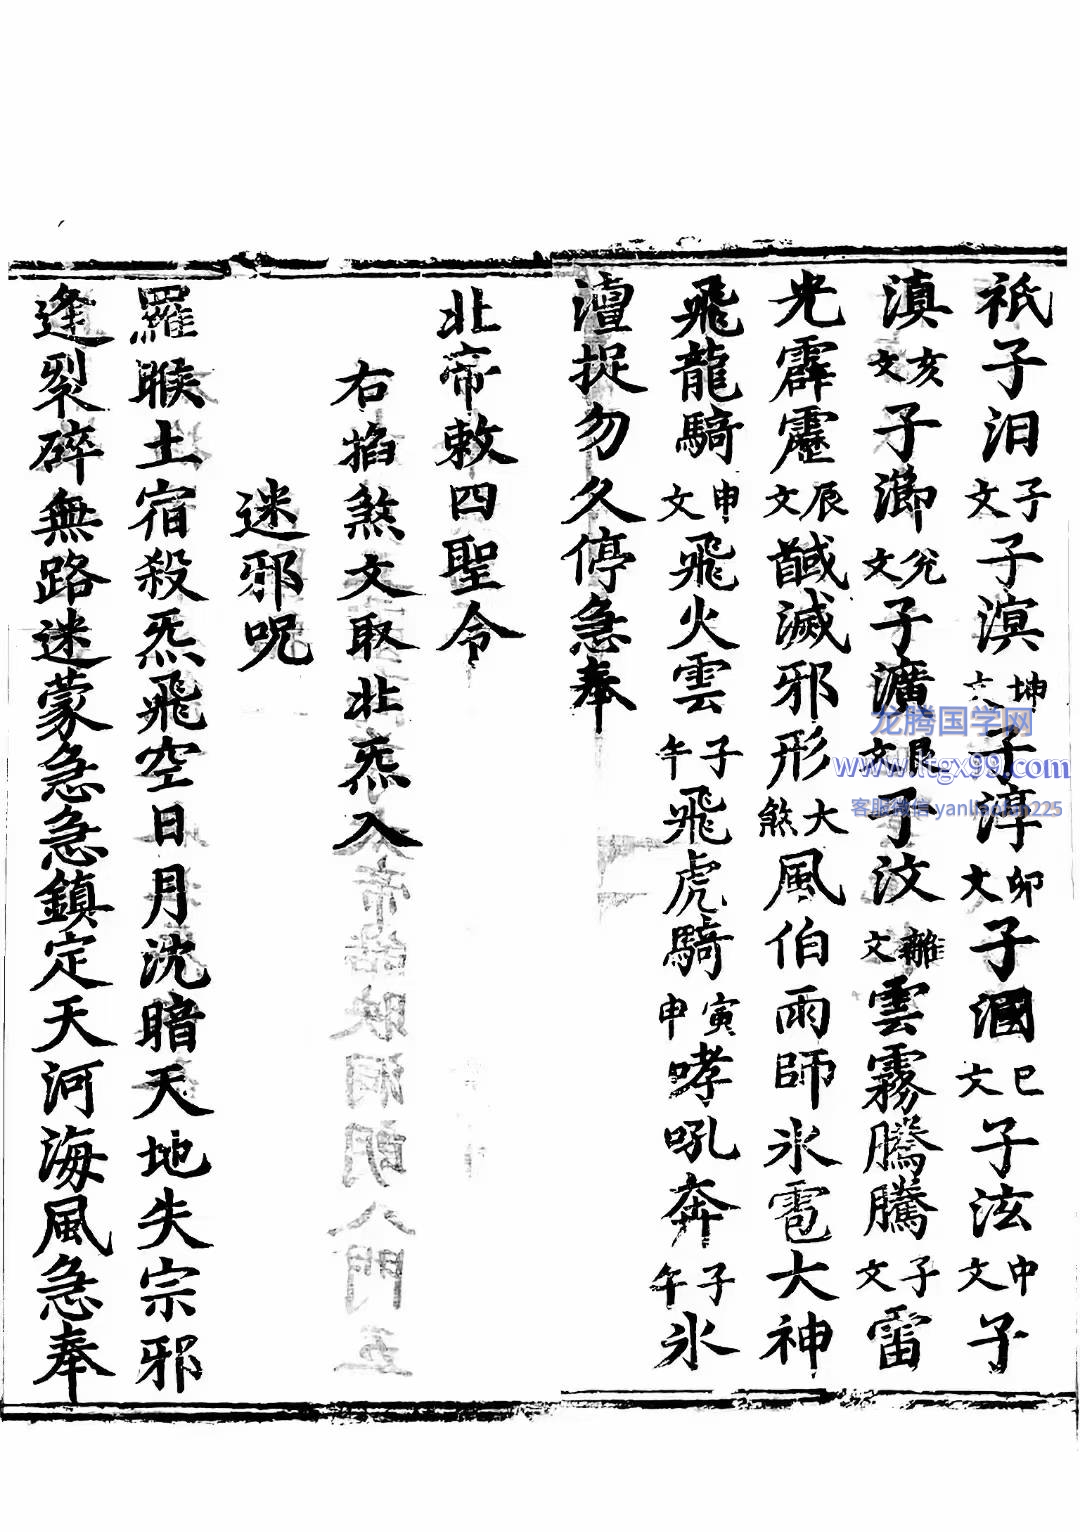 祇子汨子文子溟坤文子淳卯文子溷巳文子泫申文子
滇亥文子瀄兊文子瀇艮文子汶離文雲霧騰騰子文雷
光霹靂辰文馘滅邪形大煞風伯雨師氷雹大神
飛龍騎申文飛火雲子午飛虎騎寅申哮吼奔子午氷
澶捉勿久停急奉
北帝敕四聖令
右掐煞文取北炁入
迷邪呪
羅睺土宿殺炁飛空日月沈暗天地失宗邪
逢裂碎無路迷蒙急急鎮定天河海風急奉
龙腾国学网
www.ltgx99.com
客服微信 yanliaofan225